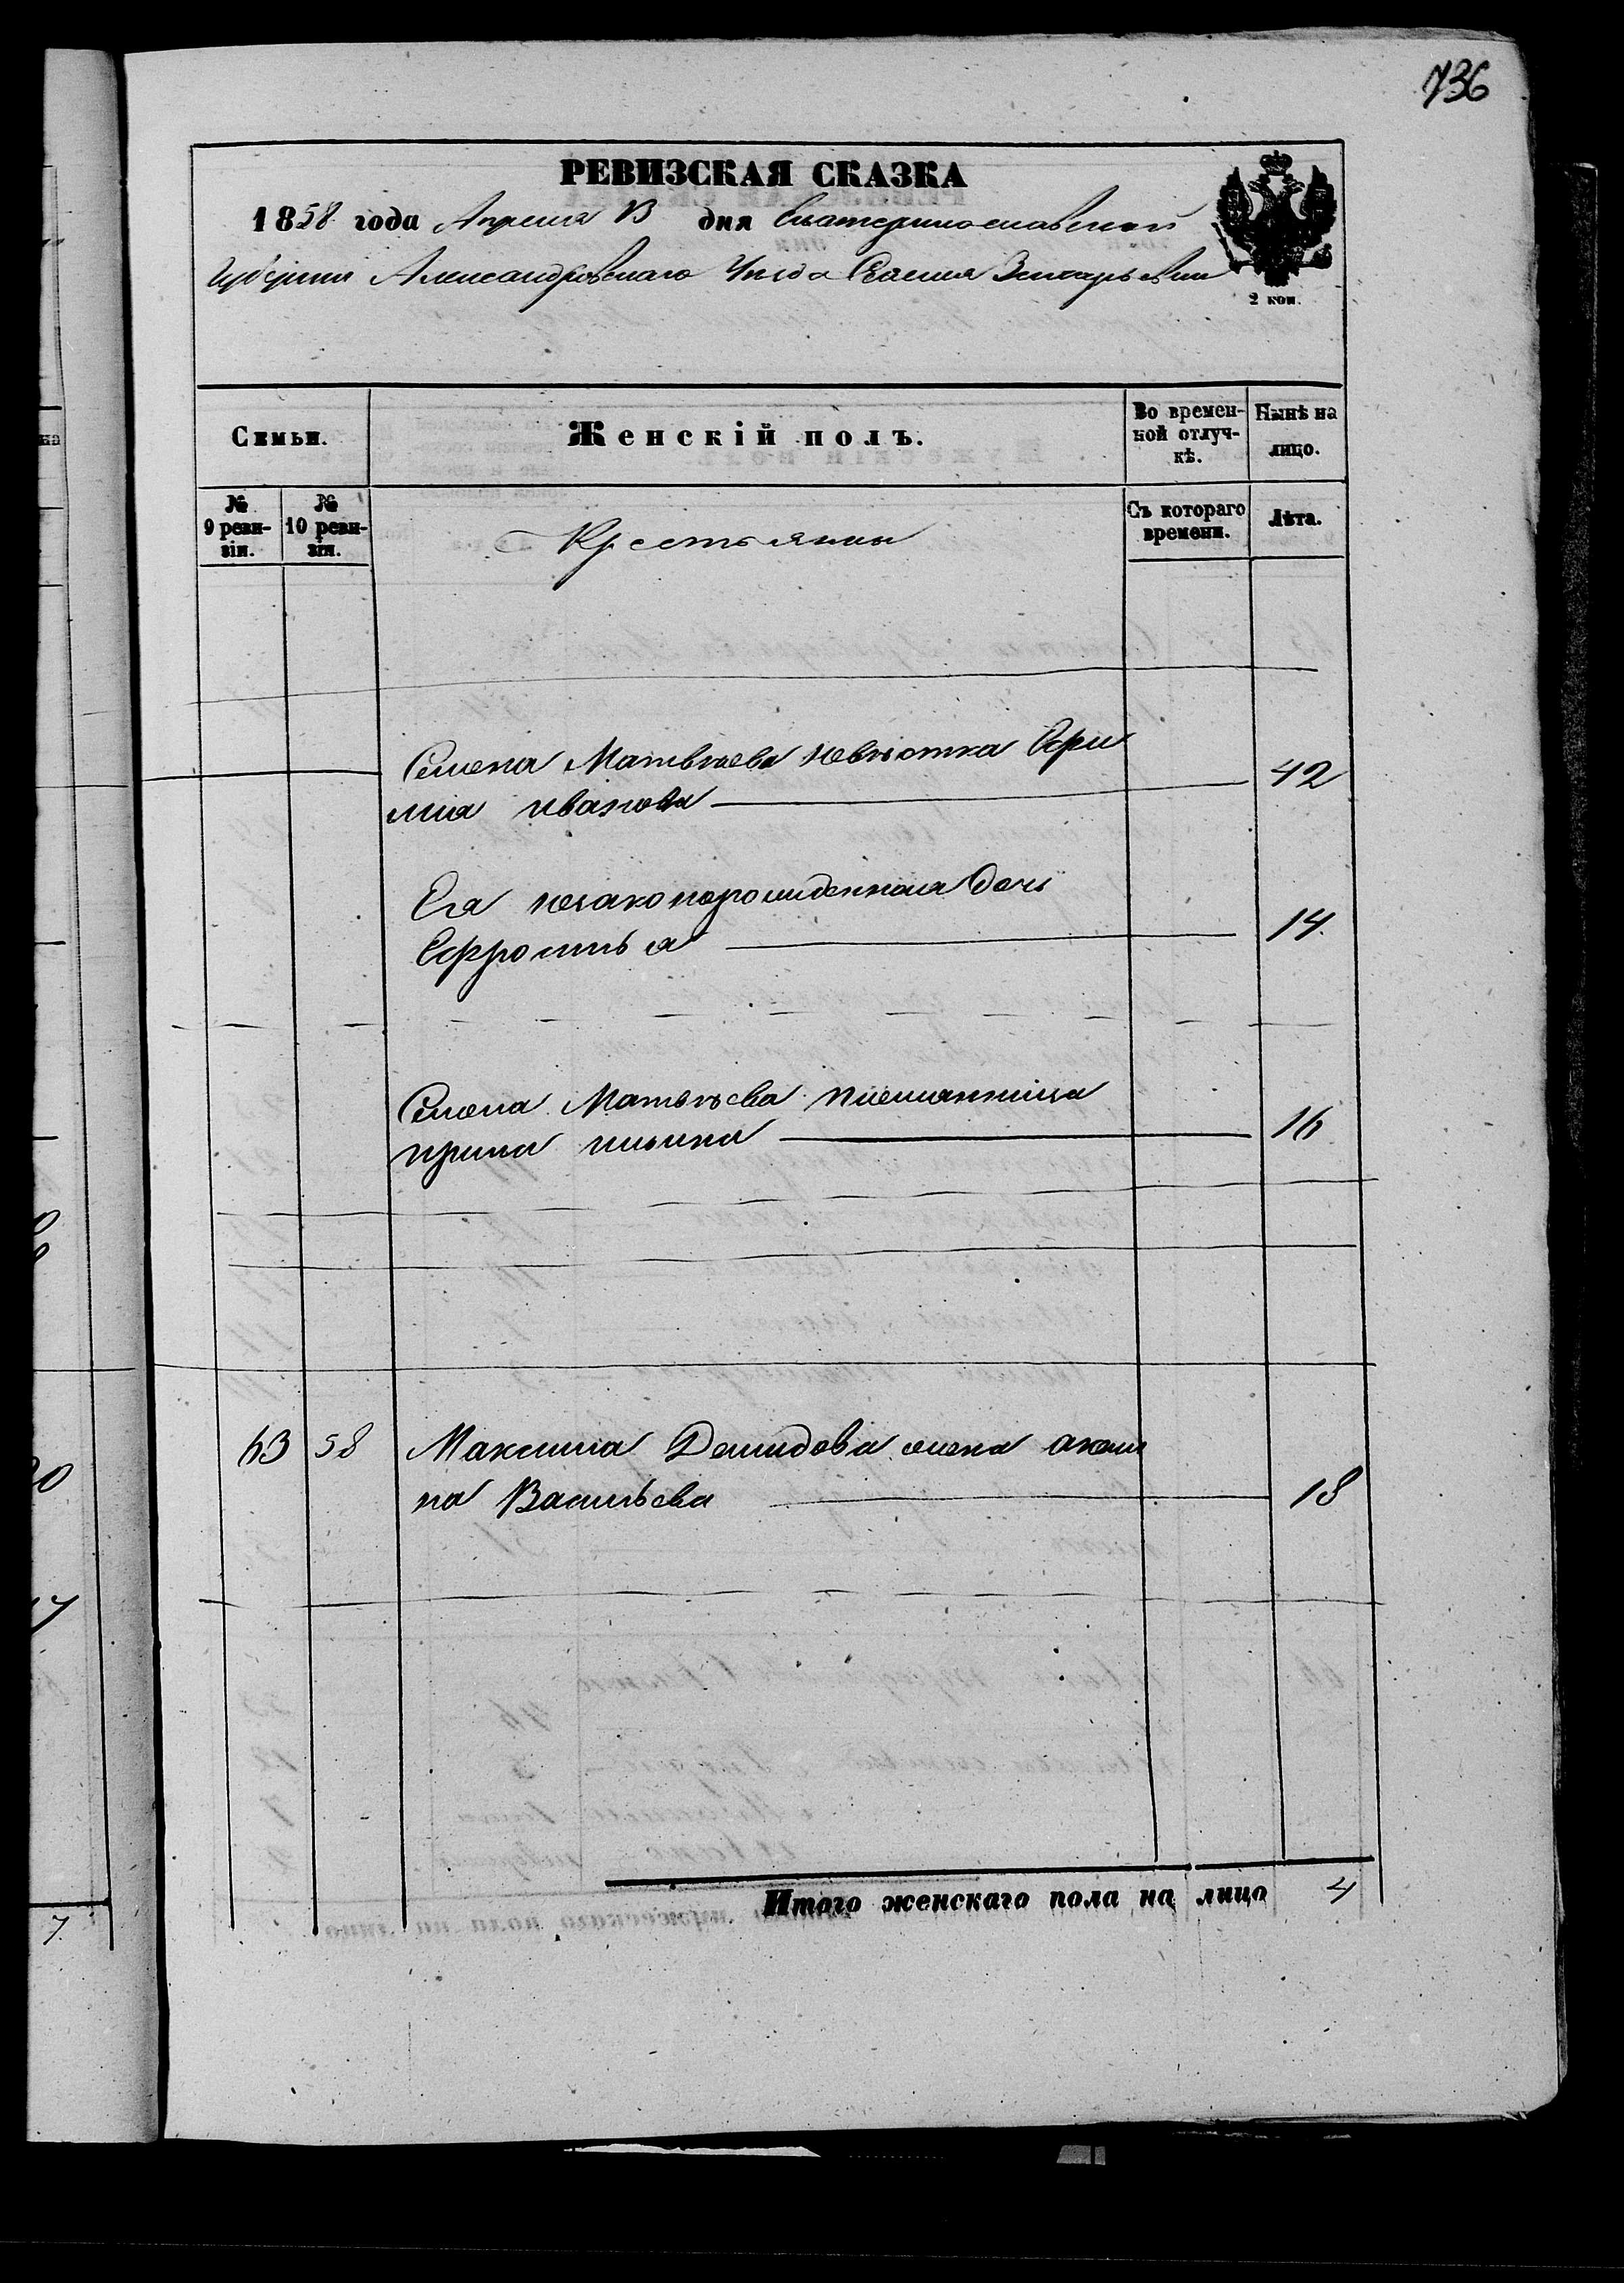 736
РЕВИЗСКАЯ СКАЗКА
1858 года Апреля 13 дня Екатеринославской
Губернии Александровскаго Уезда
2 коп.
Семьи.
Женскій полъ.
Во времен-
ной отлуч-
кѣ.
Нынѣ на
лицо.
№
9 реви-
зіи.
№
10 реви-
зіи.
Крестьяны
Съ котораго
времени.
Лѣта.
Семена Матвѣева невѣстка Ефи
мия иванова 42
Ея незаконорожденная дочь
Ефросинья 14
Семена Матвѣева племянница
ирина ильина 16
63 58 Максима Демидова жена акили
на Васильева 18
Итого женскаго пола на лицо 4
7